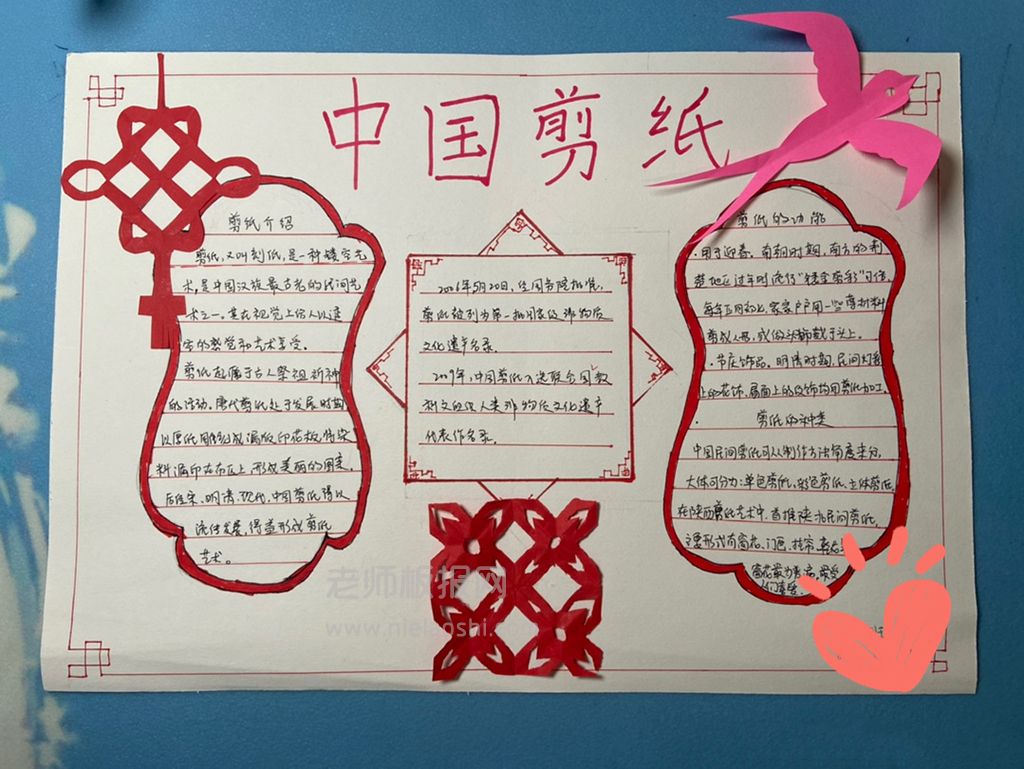 中国剪纸
剪纸介绍
剪纸，又叫刻纸，是一种镂空艺
术，是中国汉族最古老的民间艺
术之一，其在视觉上给人以透
空的感觉和艺术享受。
剪纸起源于古人祭祖祈神
的活动，唐代剪纸处于发展时期
以厚纸雕刻成漏版印花板，将染
料漏印在布匹上，形成美丽的图案。
后经宋、明、清、现代，中国剪纸得以
流传发展，得益形成剪纸
艺术。
2006年5月20日，经国务院批准，
剪纸被列为第一批国家级非物质
文化遗产名录。
2009年，中国剪纸入选联合国教
科文组织人类非物质文化遗产
代表作名录。
剪纸的功能
·用于迎春。南朝时期，南方的荆
楚地区过年时流行“镂金剪彩”习俗，
每年正月初七，家家户户用一些剪材料
剪成人形，或做头饰戴于头上。
·节庆饰品。明清时期，民间灯彩
上的花饰，扇面上的纹饰均用剪纸加工。
剪纸的种类
中国民间剪纸可从制作方法角度来分，
大体可分为：单色剪纸、彩色剪纸、立体剪纸
在陕西剪纸艺术中，首推陕北民间剪纸，
主要形式有窗花、门画、挂帘、
窗花最为
老师板报网
www.nielaoshi.